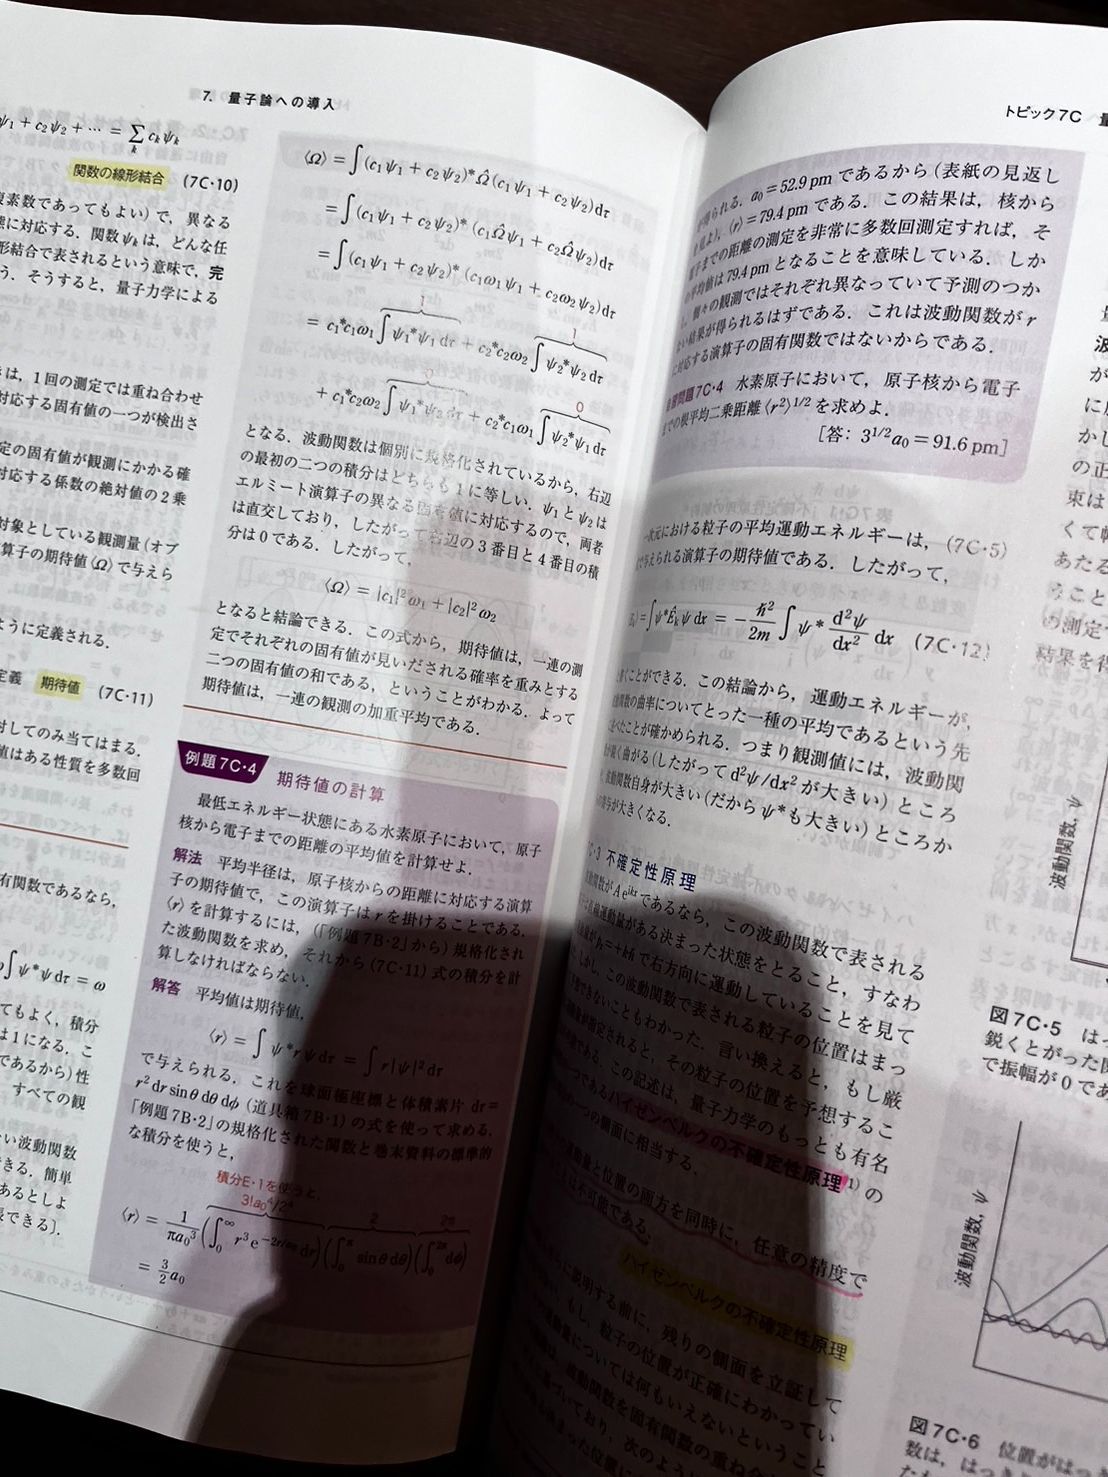 7. 量子論への導入
ψ₁ + c₂ψ₂ + ⋯ = Σ_k c_kψ_k
関数の線形結合 (7C・10)
素数であってもよい）で，異なる
態に対応する．関数ψ_kは，どんな任
形結合で表されるという意味で，完
う．そうすると，量子力学による
は，1回の測定では重ね合わせ
対応する固有値の一つが検出さ
定の固有値が観測にかかる確
対応する係数の絶対値の2乗
対象としている観測量（オブ
算子の期待値⟨Ω⟩で与えら
ように定義される．
定義 期待値 (7C・11)
対してのみ当てはまる．
値はある性質を多数回
有関数であるなら，
∫ψ*ψ dτ = ω
てもよく，積分
は1になる．こ
であるから）性
すべての観
ない波動関数
きる．簡単
あるとしよ
表できる）．
⟨Ω⟩ = ∫(c₁ψ₁ + c₂ψ₂)*Ω̂(c₁ψ₁ + c₂ψ₂)dτ
= ∫(c₁ψ₁ + c₂ψ₂)*(c₁Ω̂ψ₁ + c₂Ω̂ψ₂)dτ
= ∫(c₁ψ₁ + c₂ψ₂)*(c₁ω₁ψ₁ + c₂ω₂ψ₂)dτ
1 1
= c₁*c₁ω₁∫ψ₁*ψ₁ dτ + c₂*c₂ω₂∫ψ₂*ψ₂ dτ
0 0
+ c₁*c₂ω₂∫ψ₁*ψ₂ dτ + c₂*c₁ω₁∫ψ₂*ψ₁ dτ
となる．波動関数は個別に規格化されているから，右辺
の最初の二つの積分はどちらも1に等しい．ψ₁とψ₂は
エルミート演算子の異なる固有値に対応するので，両者
は直交しており，したがって右辺の3番目と4番目の積
分は0である．したがって，
⟨Ω⟩ = |c₁|²ω₁ + |c₂|²ω₂
となると結論できる．この式から，期待値は，一連の測
定でそれぞれの固有値が見いだされる確率を重みとする
二つの固有値の和である，ということがわかる．よって
期待値は，一連の観測の加重平均である．
例題7C・4 期待値の計算
最低エネルギー状態にある水素原子において，原子
核から電子までの距離の平均値を計算せよ．
解法 平均半径は，原子核からの距離に対応する演算
子の期待値で，この演算子はrを掛けることである．
⟨r⟩を計算するには，（「例題7B・2」から）規格化され
た波動関数を求め，それから(7C・11)式の積分を計
算しなければならない．
解答 平均値は期待値，
⟨r⟩ = ∫ψ*rψ dτ = ∫r|ψ|² dτ
で与えられる．これを球面極座標と体積素片 dτ =
r² dr sinθ dθ dϕ（道具箱7B・1）の式を使って求める．
「例題7B・2」の規格化された関数と巻末資料の標準的
な積分を使うと，
積分E・1を使うと，
3!a₀⁴/2⁴ 2 2π
⟨r⟩ = 1/πa₀³ (∫₀^∞ r³e^−2r/a₀ dr)(∫₀^π sinθ dθ)(∫₀^2π dϕ)
= 3/2 a₀
トピック7C
得られる．a₀ = 52.9 pm であるから（表紙の見返し
見よ），⟨r⟩ = 79.4 pm である．この結果は，核から
までの距離の測定を非常に多数回測定すれば，そ
平均値は79.4 pmとなることを意味している．しか
個々の観測ではそれぞれ異なっていて予測のつか
ない結果が得られるはずである．これは波動関数がr
に対応する演算子の固有関数ではないからである．
自習問題7C・4 水素原子において，原子核から電子
までの根平均二乗距離⟨r²⟩^1/2を求めよ．
［答：3^1/2 a₀ = 91.6 pm］
一次元における粒子の平均運動エネルギーは，(7C・5)
で与えられる演算子の期待値である．したがって，
⟨E_k⟩ = ∫ψ*Ê_kψ dx = −ℏ²/2m ∫ψ* d²ψ/dx² dx (7C・12)
書くことができる．この結論から，運動エネルギーが，
関数の曲率についてとった一種の平均であるという先
べたことが確かめられる．つまり観測値には，波動関
鋭く曲がる（したがって d²ψ/dx² が大きい）ところ
波動関数自身が大きい（だからψ*も大きい）ところか
寄与が大きくなる．
7C・3 不確定性原理
波動関数がAe^ikxであるなら，この波動関数で表される
直線運動量がある決まった状態をとること，すなわ
= +kℏで右方向に運動していることを見て
しかし，この波動関数で表される粒子の位置はまっ
できないこともわかった．言い換えると，もし厳
指定されると，その粒子の位置を予想するこ
である．この記述は，量子力学のもっとも有名
一つであるハイゼンベルクの不確定性原理¹⁾の
一つの側面に相当する．
運動量と位置の両方を同時に，任意の精度で
とは不可能である．
ハイゼンベルクの不確定性原理
さらに説明する前に，残りの側面を立証して
もし，粒子の位置が正確にわかってい
運動量については何もいえないということ
波動関数を固有関数の重ね合
に基づいており，次のよう
波動関数，ψ
図7C・5 はっ
鋭くとがった関
で振幅が0であ
波動関数，ψ
図7C・6 位置がはっ
数は，はっ